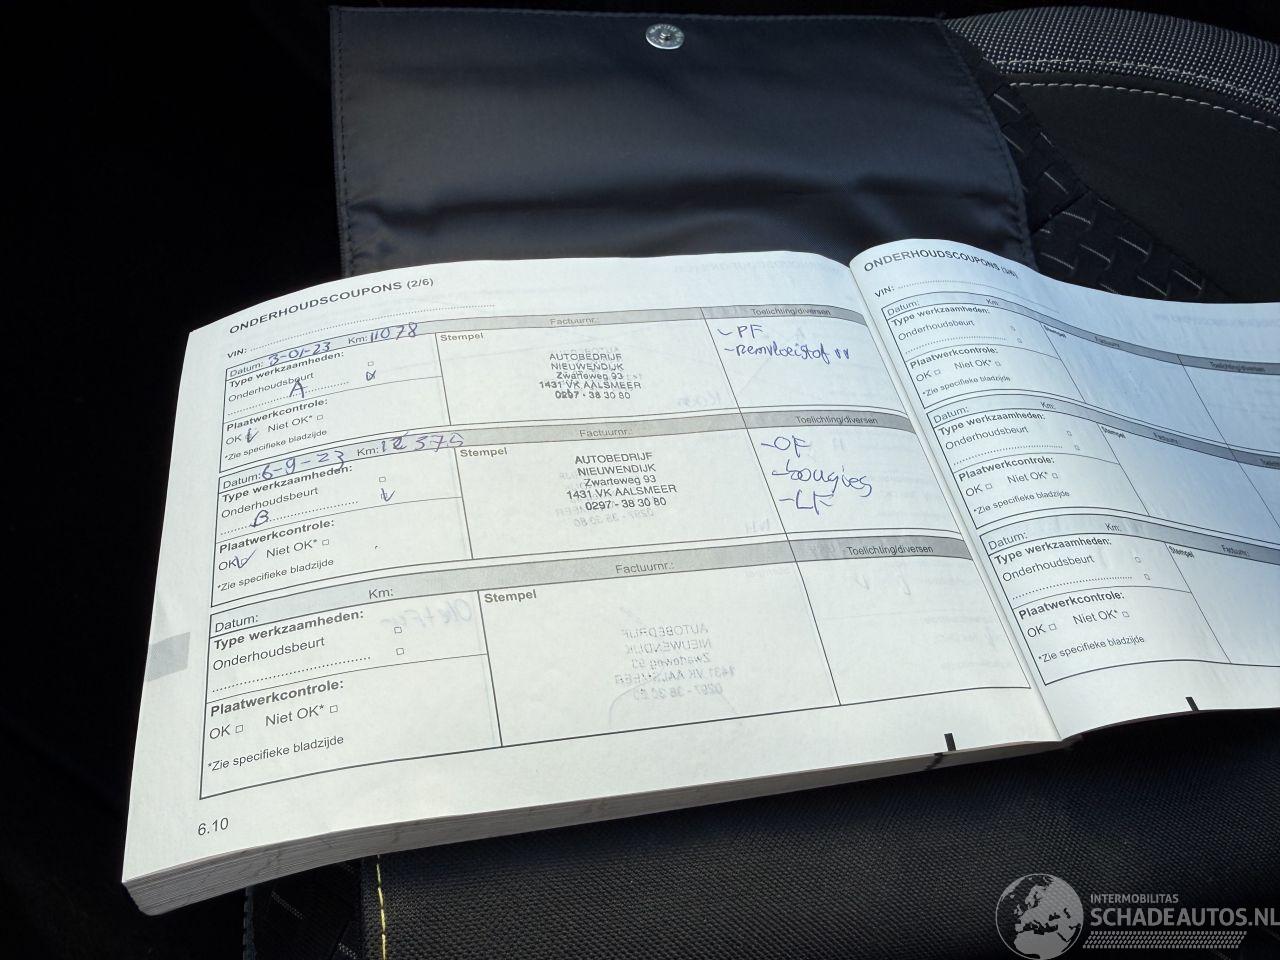 ONDERHOUDSCOUPONS (2/6)
VIN:
Datum: 3-01-23 Km: 11078
Type werkzaamheden:
Onderhoudsbeurt
A
Plaatwerkcontrole:
OK Niet OK*
*Zie specifieke bladzijde
Stempel
Factuurnr.:
AUTOBEDRIJF
NIEUWENDIJK
Zwarteweg 93
1431 VK AALSMEER
0297 - 38 30 80
Toelichting/diversen
- PF
- Remvloeistof
Datum: 6-9-23 Km: 12375
Type werkzaamheden:
Onderhoudsbeurt
B
Plaatwerkcontrole:
OK Niet OK*
*Zie specifieke bladzijde
Stempel
Factuurnr.:
AUTOBEDRIJF
NIEUWENDIJK
Zwarteweg 93
1431 VK AALSMEER
0297 - 38 30 80
Toelichting/diversen
- OF
- bougies
- LF
Datum: Km:
Type werkzaamheden:
Onderhoudsbeurt
Plaatwerkcontrole:
OK Niet OK*
*Zie specifieke bladzijde
Stempel
Factuurnr.:
Toelichting/diversen
6.10
ONDERHOUDSCOUPONS (3/6)
VIN:
Datum: Km:
Type werkzaamheden:
Onderhoudsbeurt
Plaatwerkcontrole:
OK Niet OK*
*Zie specifieke bladzijde
Stempel
Factuurnr.
Toelichting/diversen
Datum: Km:
Type werkzaamheden:
Onderhoudsbeurt
Plaatwerkcontrole:
OK Niet OK*
*Zie specifieke bladzijde
Stempel
Factuurnr.:
Datum: Km:
Type werkzaamheden:
Onderhoudsbeurt
Plaatwerkcontrole:
OK Niet OK*
*Zie specifieke bladzijde
Stempel
Factuurnr.:
INTERMOBILITAS
SCHADEAUTOS.NL